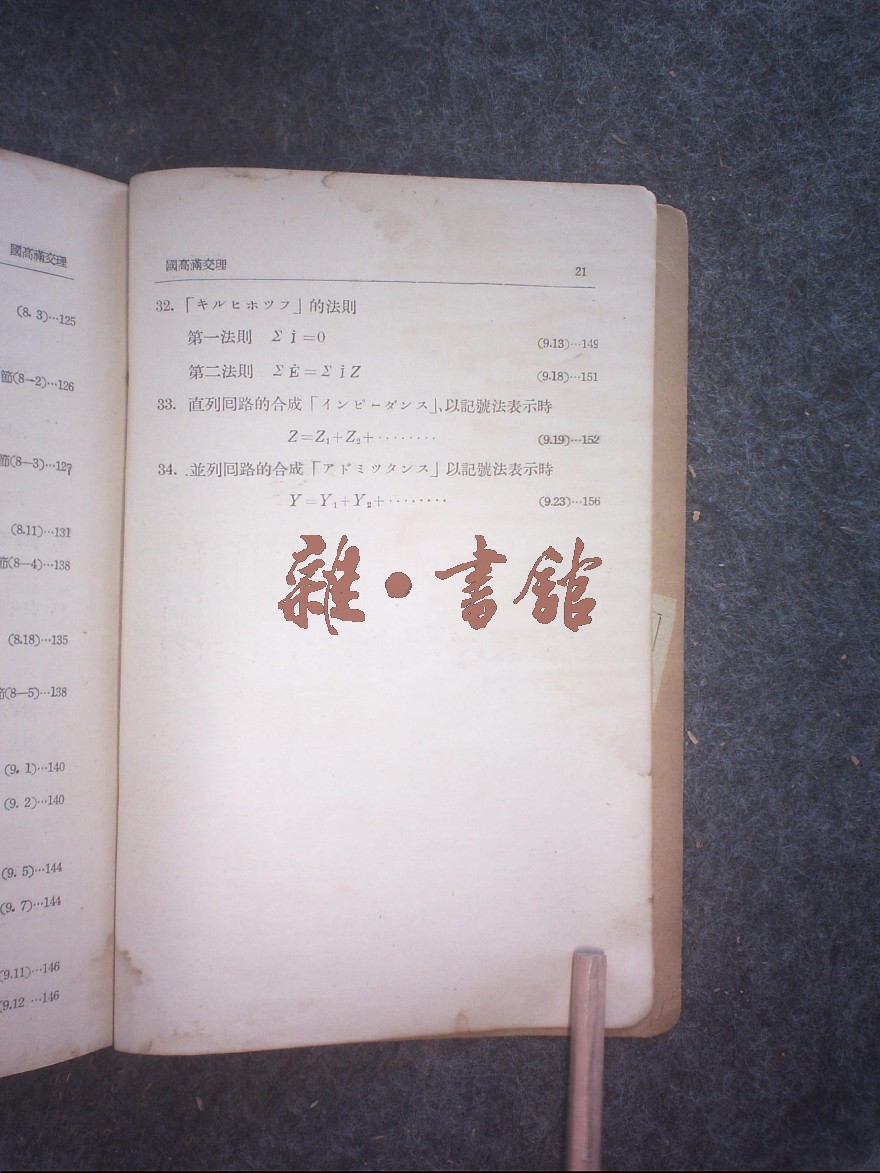 國高滿交理
(8. 3)…125
節(8—2)…126
節(8—3)…127
(8.11)…131
節(8—4)…138
(8.18)…135
節(8—5)…138
(9. 1)…140
(9. 2)…140
(9. 5)…144
(9. 7)…144
(9.11)…146
(9.12 …146
國高滿交理 21
32.「キルヒホツフ」的法則
第一法則 Σ İ =0 (9.13)…149
第二法則 Σ Ė = Σ İ Z (9.18)…151
33. 直列回路的合成「インピーダンス」,以記號法表示時
Z=Z₁+Z₂+········ (9.19)…152
34. 並列回路的合成「アドミツタンス」以記號法表示時
Y=Y₁+Y₂+········ (9.23)…156
雜·書館